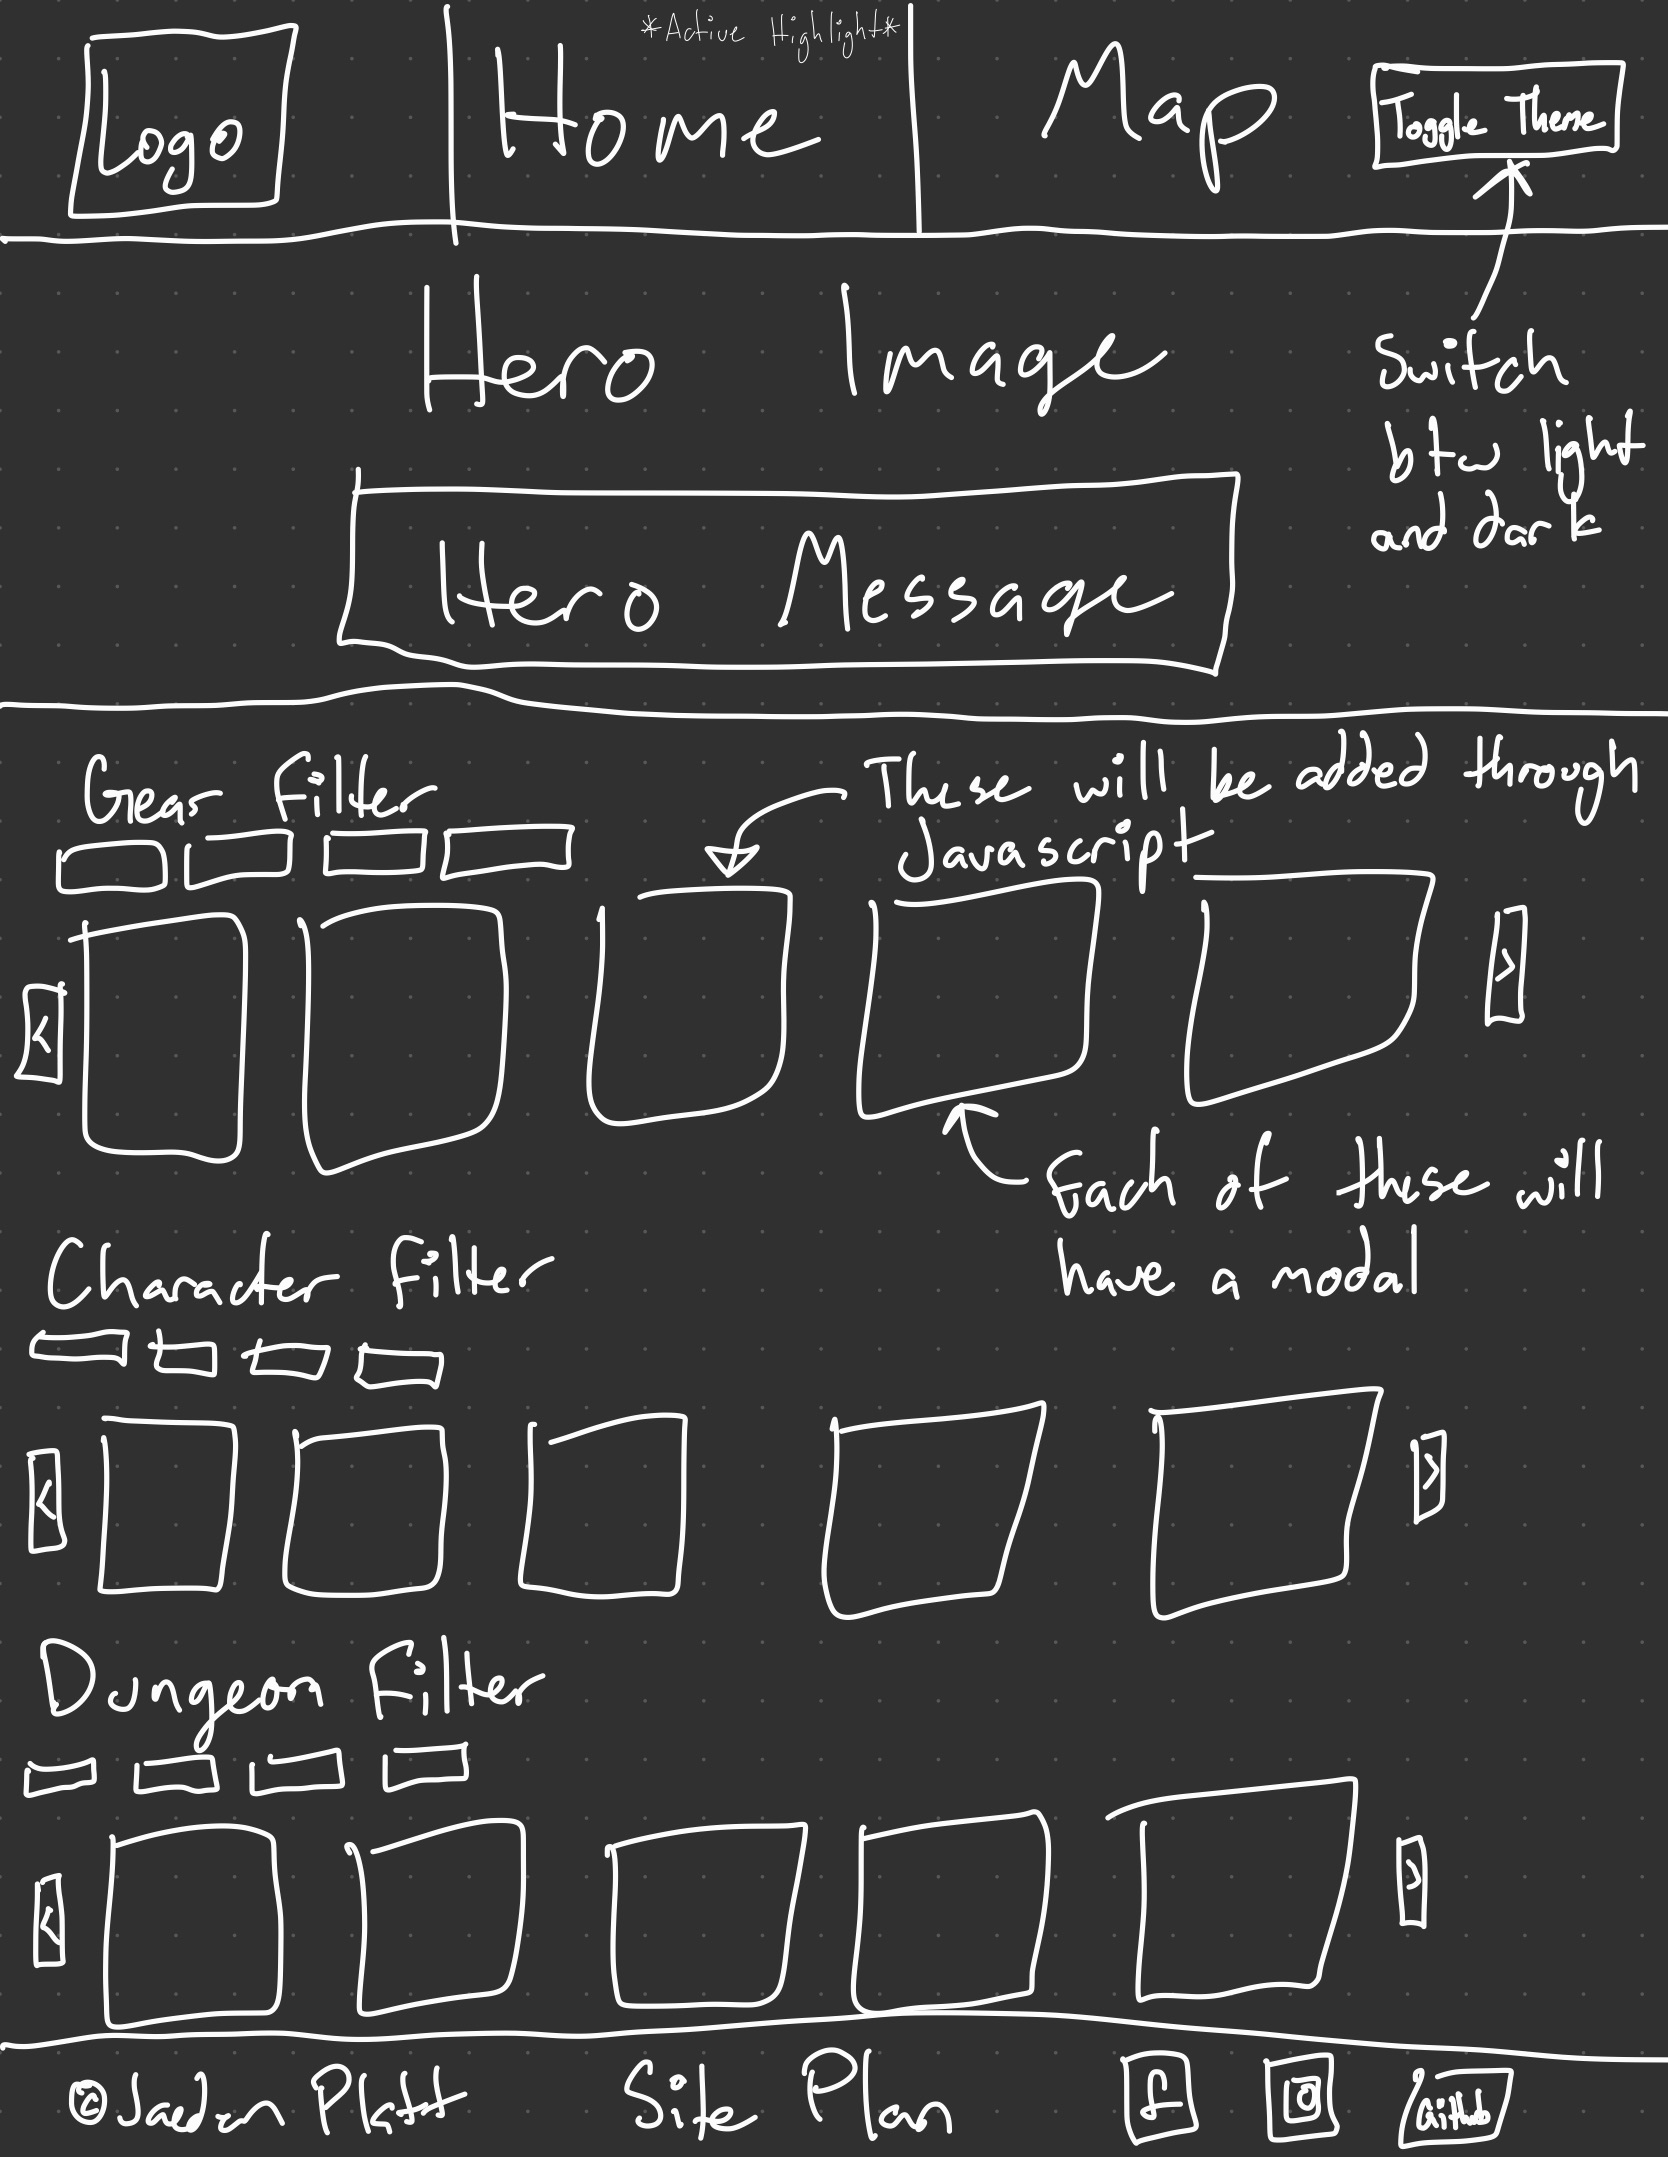 *Active Highlight*
Logo
Home
Map
Toggle Theme
Hero Image
Switch
btw light
and dark
Hero Message
Gear Filter
These will be added through
Javascript
<
>
Each of these will
have a modal
Character Filter
<
>
Dungeon Filter
<
>
©Jaedan Platt
Site Plan
f
GitHub